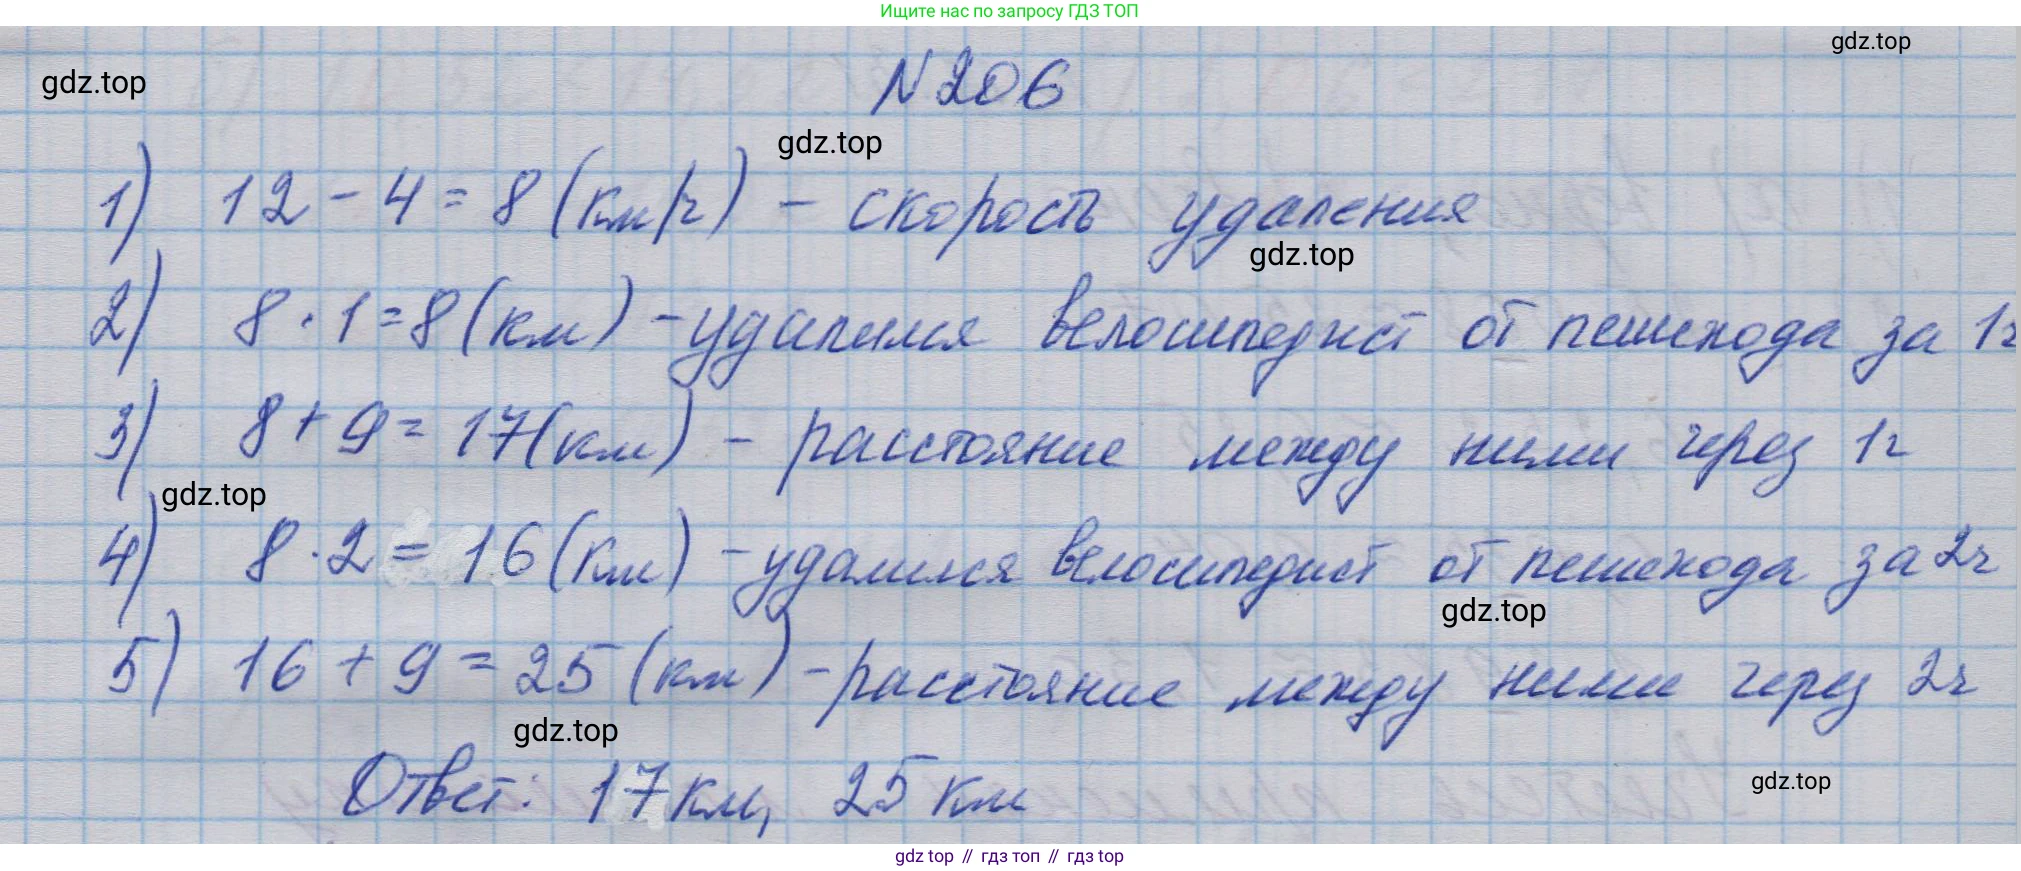 Ищите нас по запросу ГДЗ ТОП
gdz.top
gdz.top
N 206
gdz.top
1) 12 - 4 = 8 (км/ч) - скорость удаления
gdz.top
2) 8 · 1 = 8 (км) - удалился велосипедист от пешехода за 1ч
3) 8 + 9 = 17 (км) - расстояние между ними через 1ч
gdz.top
4) 8 · 2 = 16 (км) - удалился велосипедист от пешехода за 2ч
gdz.top
5) 16 + 9 = 25 (км) - расстояние между ними через 2ч
gdz.top
Ответ: 17 км, 25 км
gdz.top
gdz top // гдз топ // гдз top